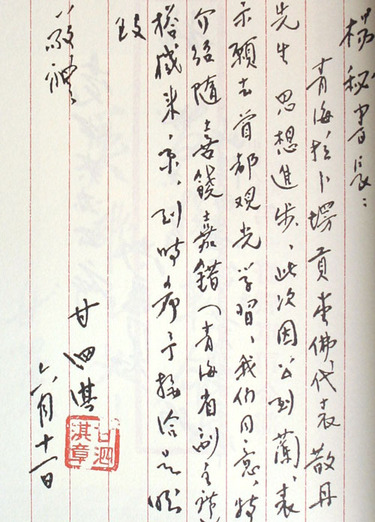 杨秘书長：
青海拉卜楞贡唐佛代表敬丹
先生 思想進步、此次因公到蘭、表
示願去首都观光学習、我们同意、特
介绍随喜饶嘉錯（青海省副主席
搭機来京、到時希予接洽是盼
致
敬禮
甘泗淇
甘泗淇章
六月十一日